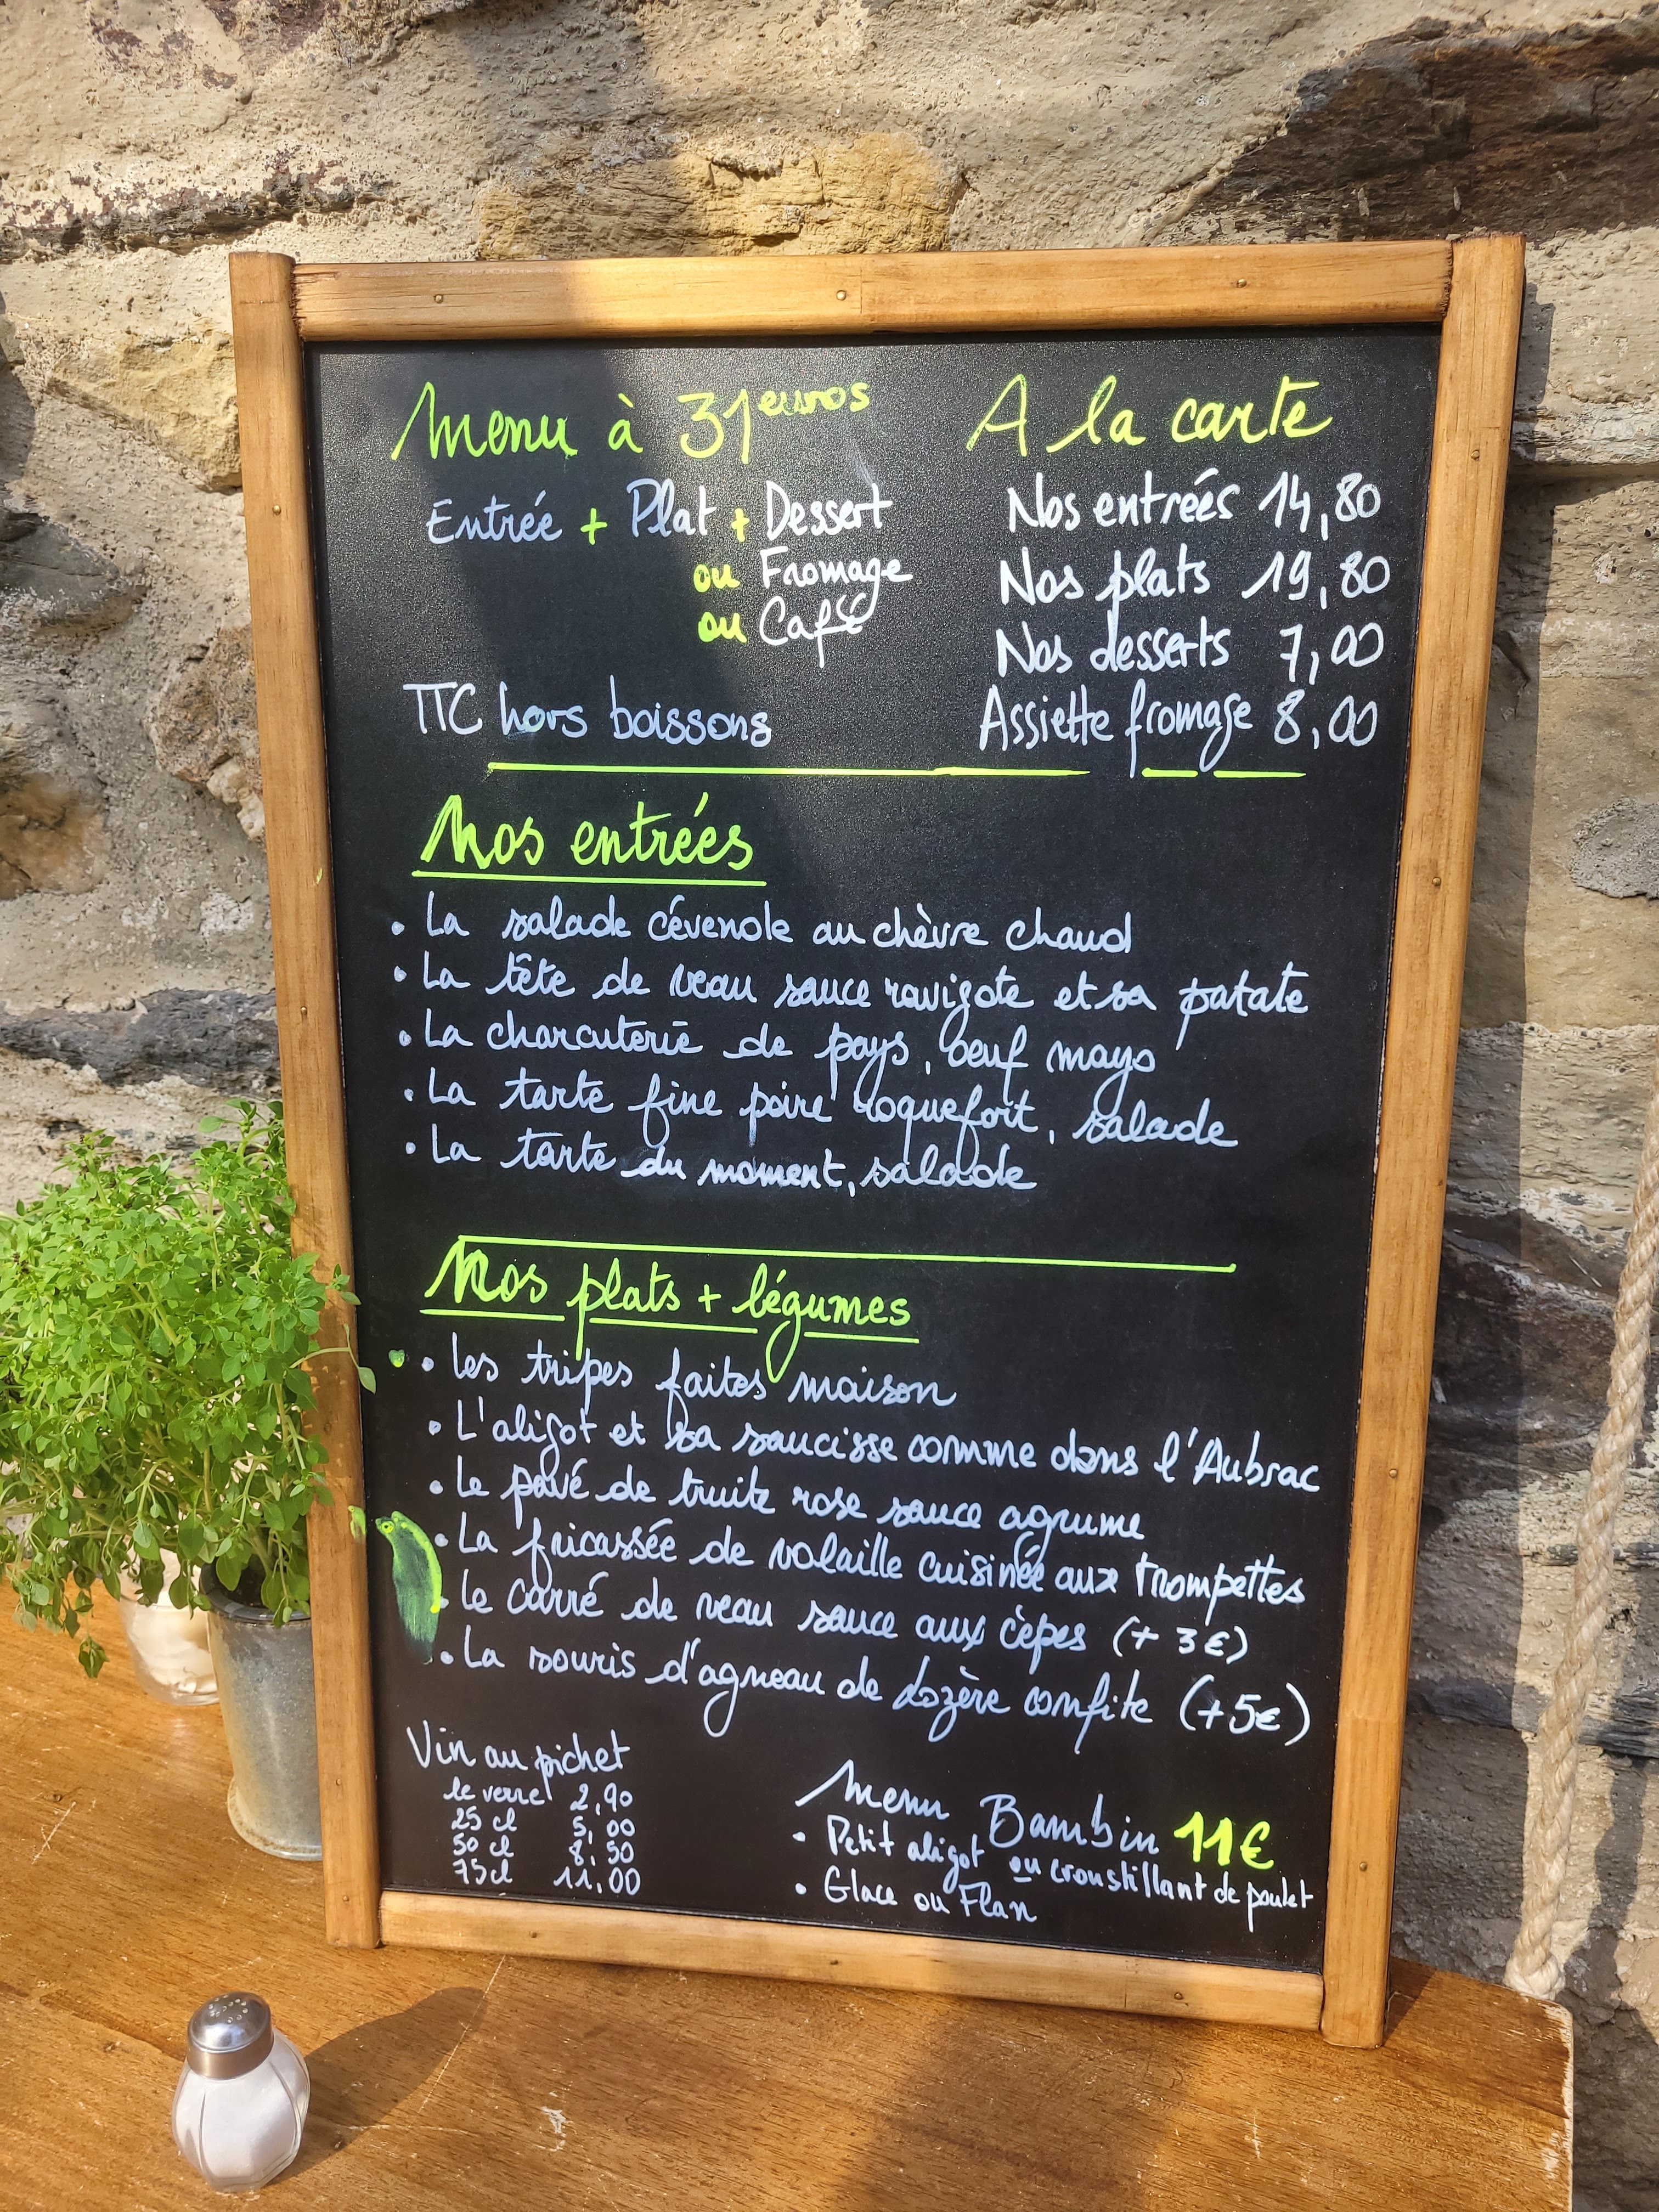 Menu à 31 euros
Entrée + Plat + Dessert
ou Fromage
ou Café
TTC hors boissons
A la carte
Nos entrées 14,80
Nos plats 19,80
Nos desserts 7,00
Assiette fromage 8,00
Nos entrées
• La salade cévenole au chèvre chaud
• La tête de veau sauce ravigote et sa patate
• La charcuterie de pays, oeuf mayo
• La tarte fine poire roquefort, salade
• La tarte du moment, salade
Nos plats + légumes
• Les tripes faites maison
• L'aligot et sa saucisse comme dans l'Aubrac
• Le pavé de truite rose sauce agrume
• La fricassée de volaille cuisinée aux trompettes
• Le carré de veau sauce aux cèpes (+ 3€)
• La souris d'agneau de Lozère confite (+5€)
Vin au pichet
le verre 2,90
25 cl 5,00
50 cl 8,50
75cl 11,00
Menu Bambin 11€
• Petit aligot ou croustillant de poulet
• Glace ou Flan